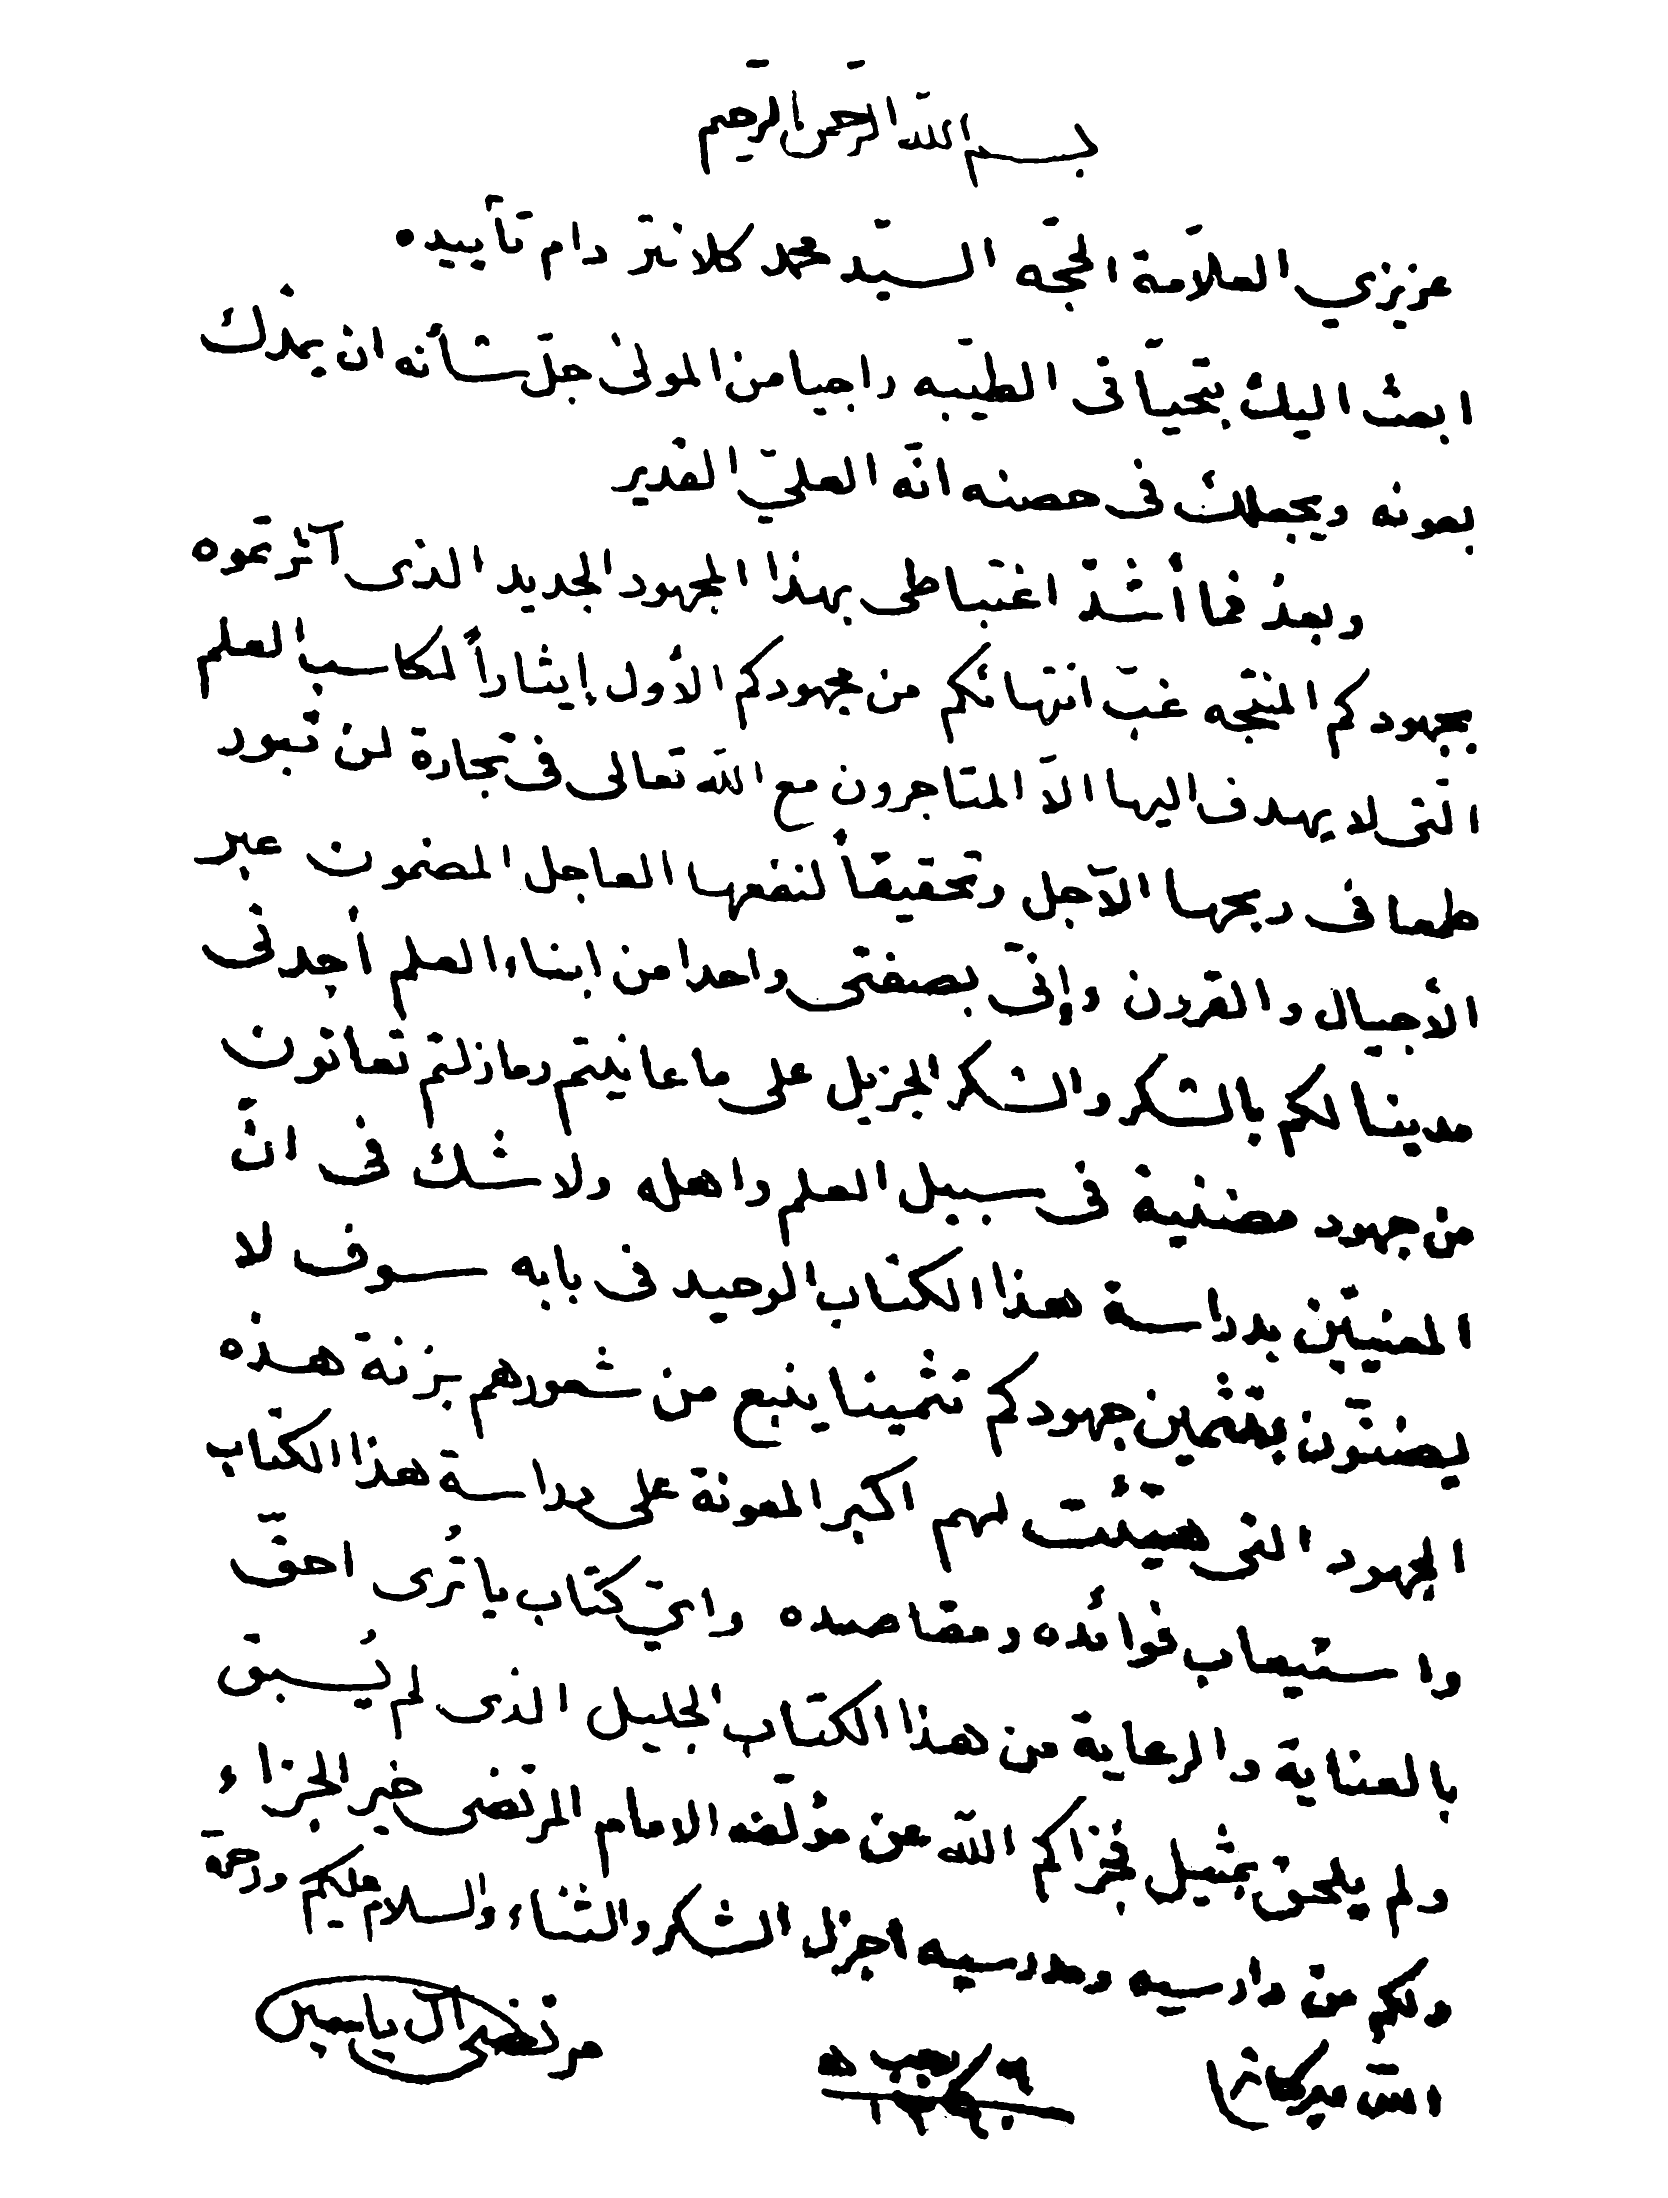 بسم الله الرحمن الرحيم
عزيزي العلامة الحجه السيّد محمد كلانتر دام تأييده
ابعث اليك بتحياتى الطيبه راجيا من المولى جلّ شأنه ان يمدك
بعونه ويجعلك فى حصنه انّه العليّ القدير
وبعد فما أشدّ اغتباطى بهذا المجهود الجديد الذى آثرتموه
بجهودكم المنتجه غبّ انتهائكم من مجهودكم الأول إيثاراً لمكاسب العلم
الّتى لا يهدف اليها الاّ المتاجرون مع الله تعالى فى تجارة لن تبور
طمعا فى ربحها الآجل وتحقيقاً لنفعها العاجل المضمون عبر
الأجيال والقرون وإنّى بصفتى واحدا من ابناء العلم أجدنى
مدينا لكم بالشكر والشكر الجزيل على ما عانيتم وما زلتم تعانون
من جهود مضنية فى سبيل العلم واهله ولا شك فى انّ
المعنيّين بدراسة هذا الكتاب الوحيد فى بابه سوف لا
يضنّون بتثمين جهودكم تثمينا ينبع من شعورهم بزنة هذه
الجهود التى هيّئت لهم اكبر المعونة على دراسة هذا الكتاب
واستيعاب فوائده ومقاصده وايّ كتاب يا تُرى احقّ
بالعناية والرعاية من هذا الكتاب الجليل الذى لم يُسبق
ولم يلحق بمثيل فجزاكم الله عن مؤلّفه الامام المرتضى خير الجزاء
ولكم من دارسيه ومدرسيه اجزل الشكر والثناء والسلام عليكم ورحمة
اللّه وبركاته
٦ رجب ١٣٩٠ ه
مرتضى آل ياسين